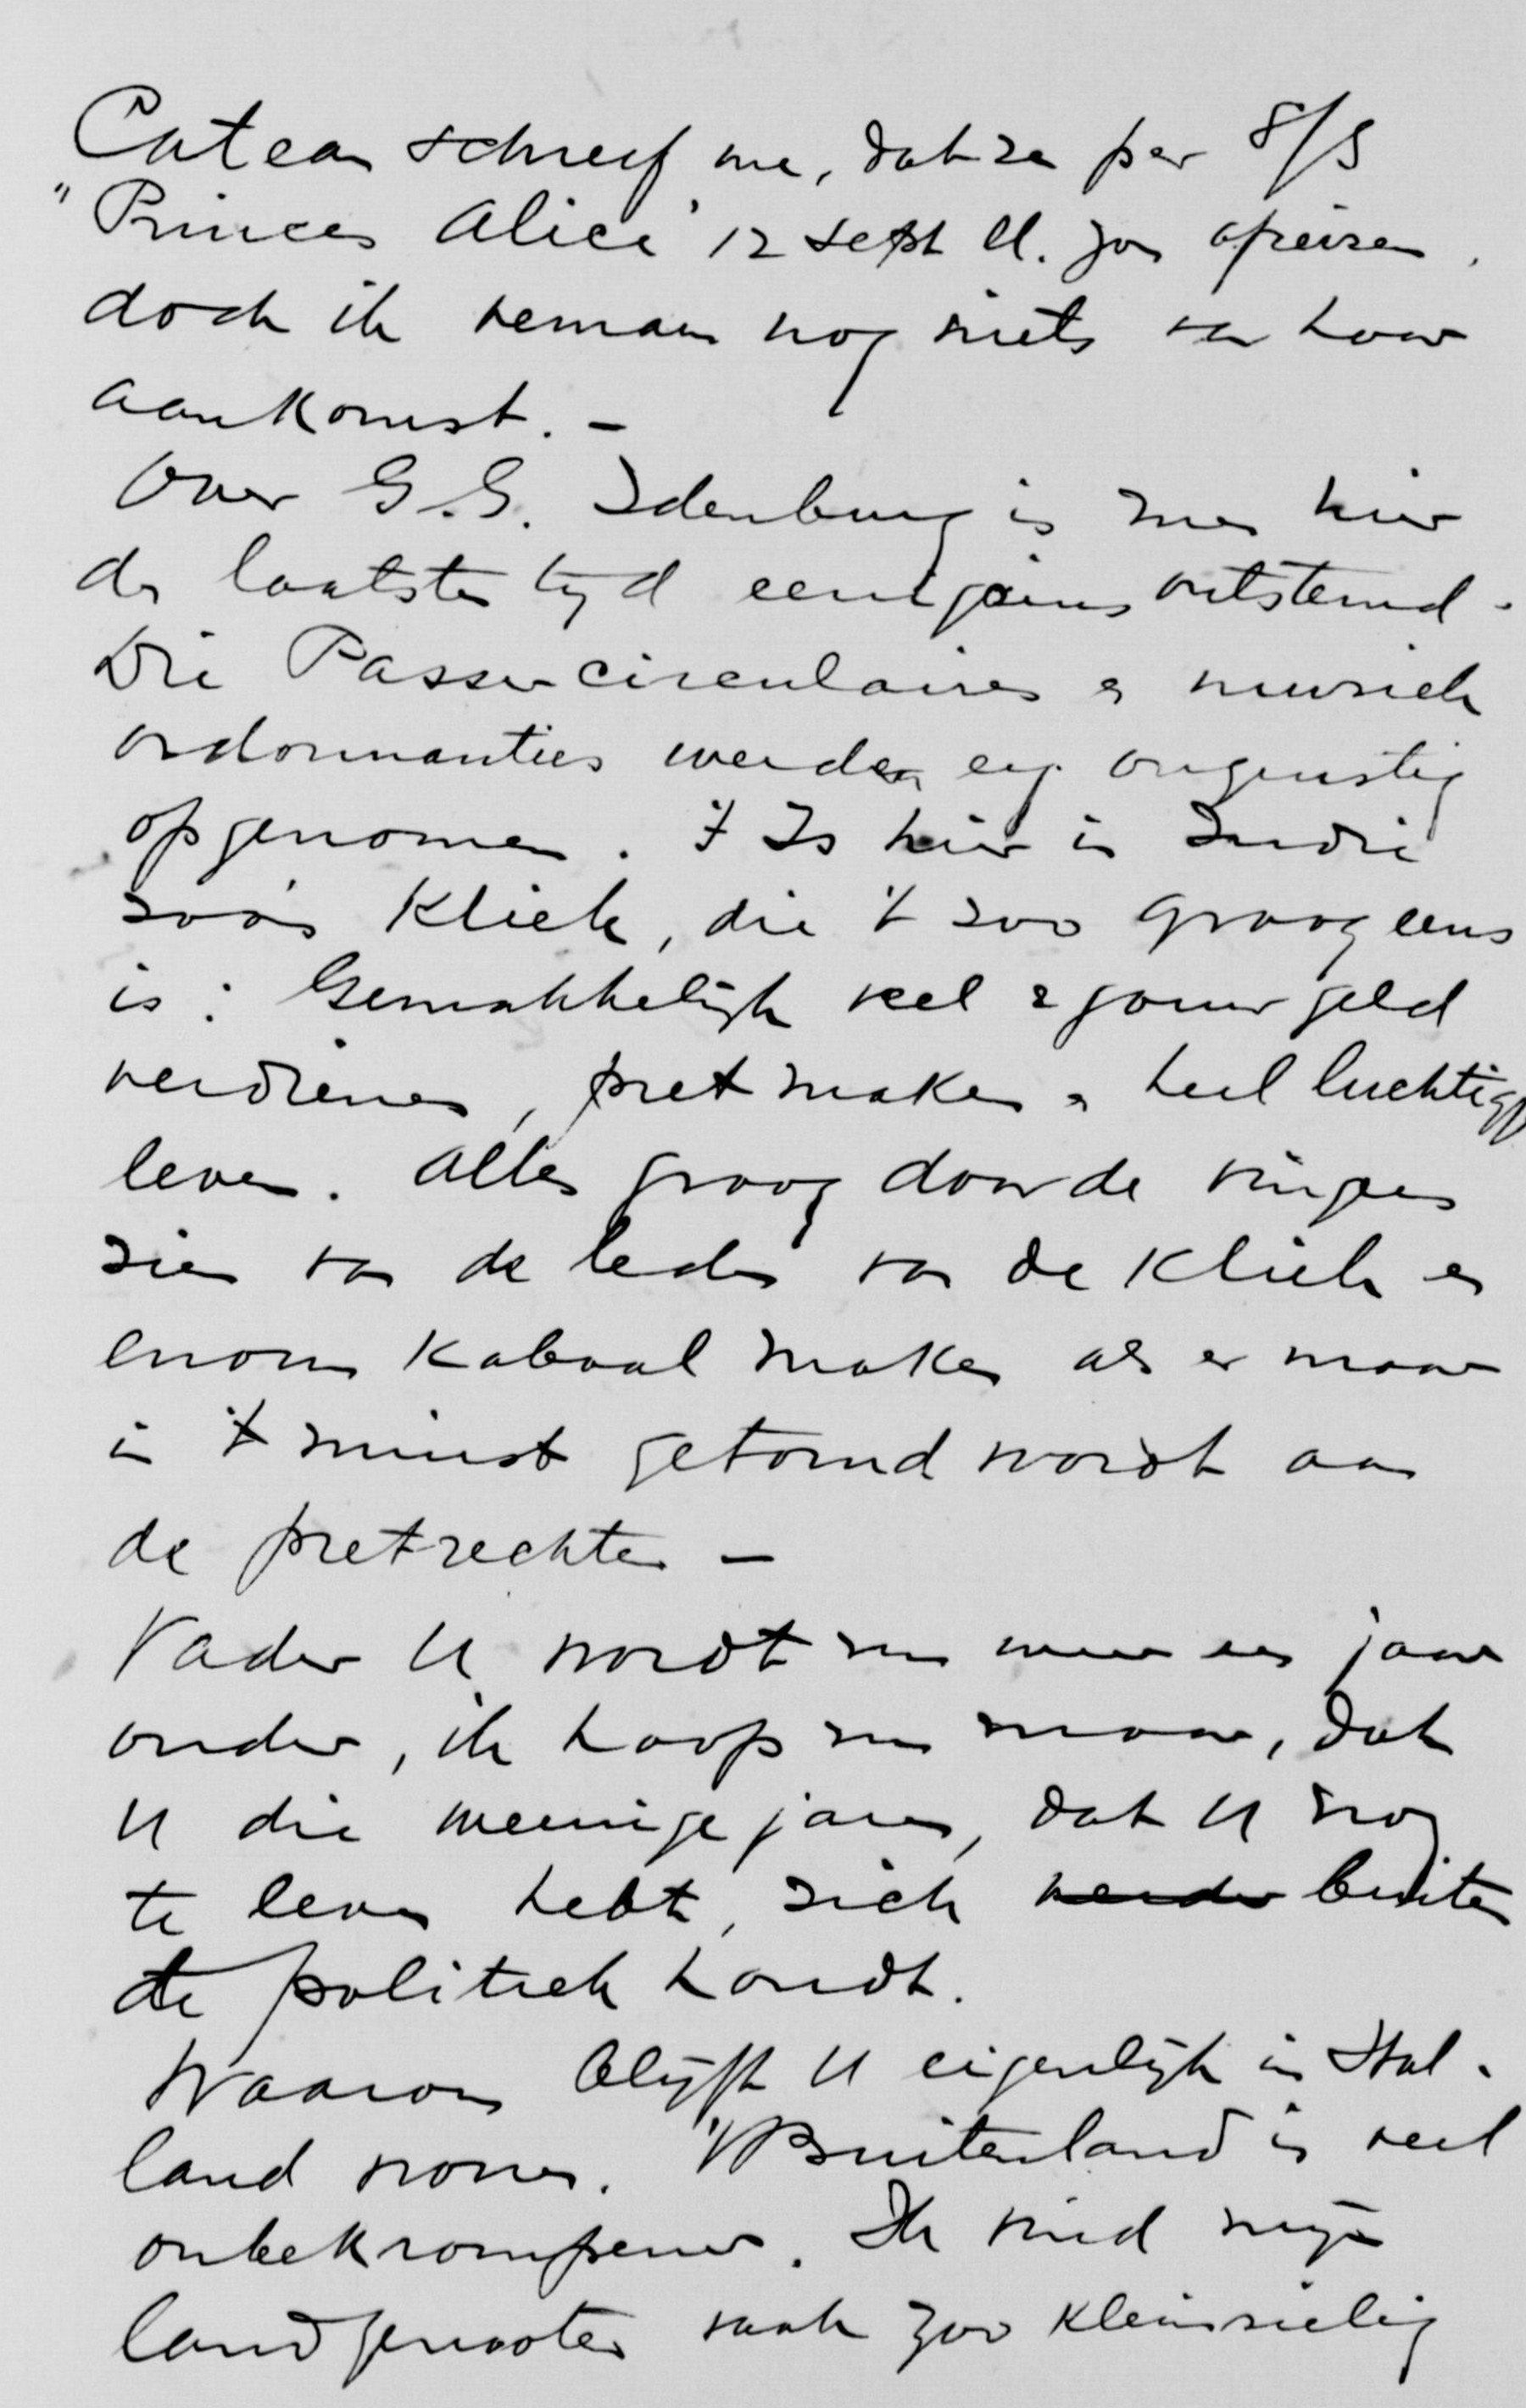 Cateau schreef me, dat ze per S/S
"Princes Alice" 12 Sept ll. zou afreizen,
doch ik vernam nog niets van haar
aankomst. -
Over G.G. Idenburg is men hier
de laatste tyd eenigszins ontstemd.
Die Passer circulaires & muziek
ordonnanties werden erg ongunstig
opgenomen. 't Is hier in Indië
zoo'n kliek, die 't zoo graag eens
is: Gemakkelijk veel & gauw geld
verdienen, pret maken & heel luchtig
leven. Alles graag door de vingers
zien van de leden van de kliek en
enorm kabaal maken als er maar
in 't minst getornd wordt aan
de pretrechten -
Vader U wordt nu weer een jaar
ouder, ik hoop nu maar, dat
U die weenige jaren, dat U nog
te leven hebt, zich verder buiten
de politiek houdt.
Waarom blijft U eigenlijk in Hol-
land wonen. 't Buitenland is veel
onbekrompener. Ik vind mijn
landgenooten vaak zoo kleinzielig